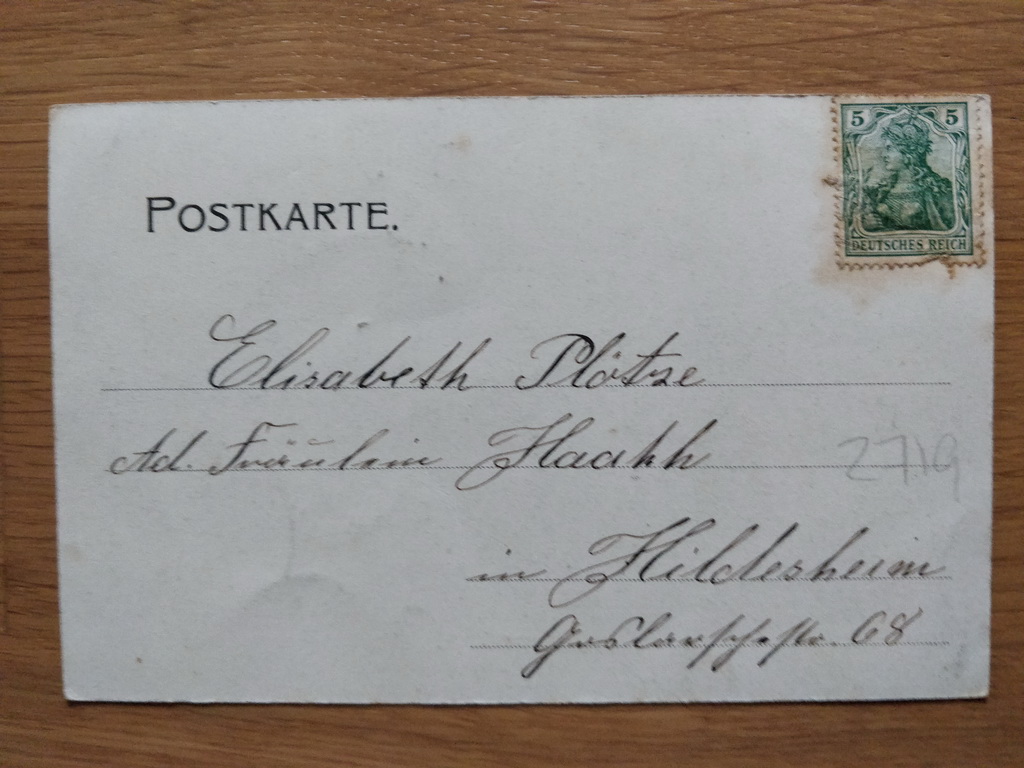 5 5
DEUTSCHES REICH
POSTKARTE.
Elisabeth Plötze
Ad. Fräulein Haakh
2719
in Hildesheim
Goslarschestr. 68